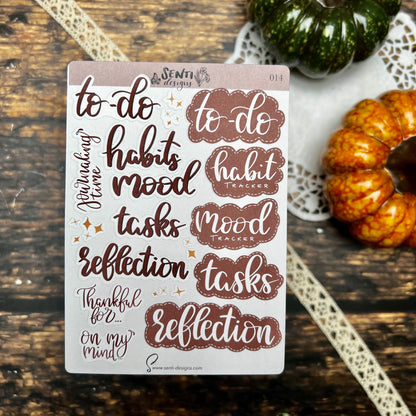 SENTI
designs
014
to-do
Journaling
time
habits
mood
tasks
reflection
Thankful
for...
on my
mind
to-do
habit
TRACKER
mood
TRACKER
tasks
reflection
www.senti-designs.com